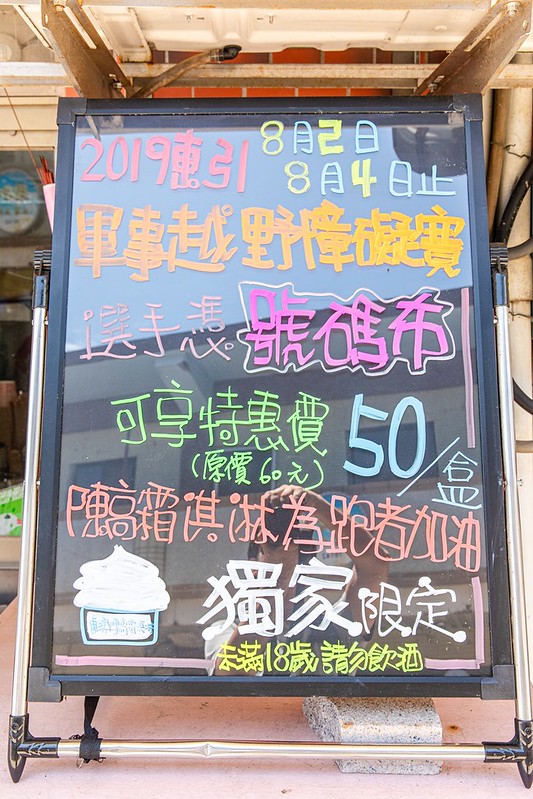 2019東引 8月2日
8月4日止
軍事越野障礙賽
選手憑 號碼布
可享特惠價 50/盒
(原價60元)
陳高霜淇淋為跑者加油
獨家限定
未滿18歲請勿飲酒